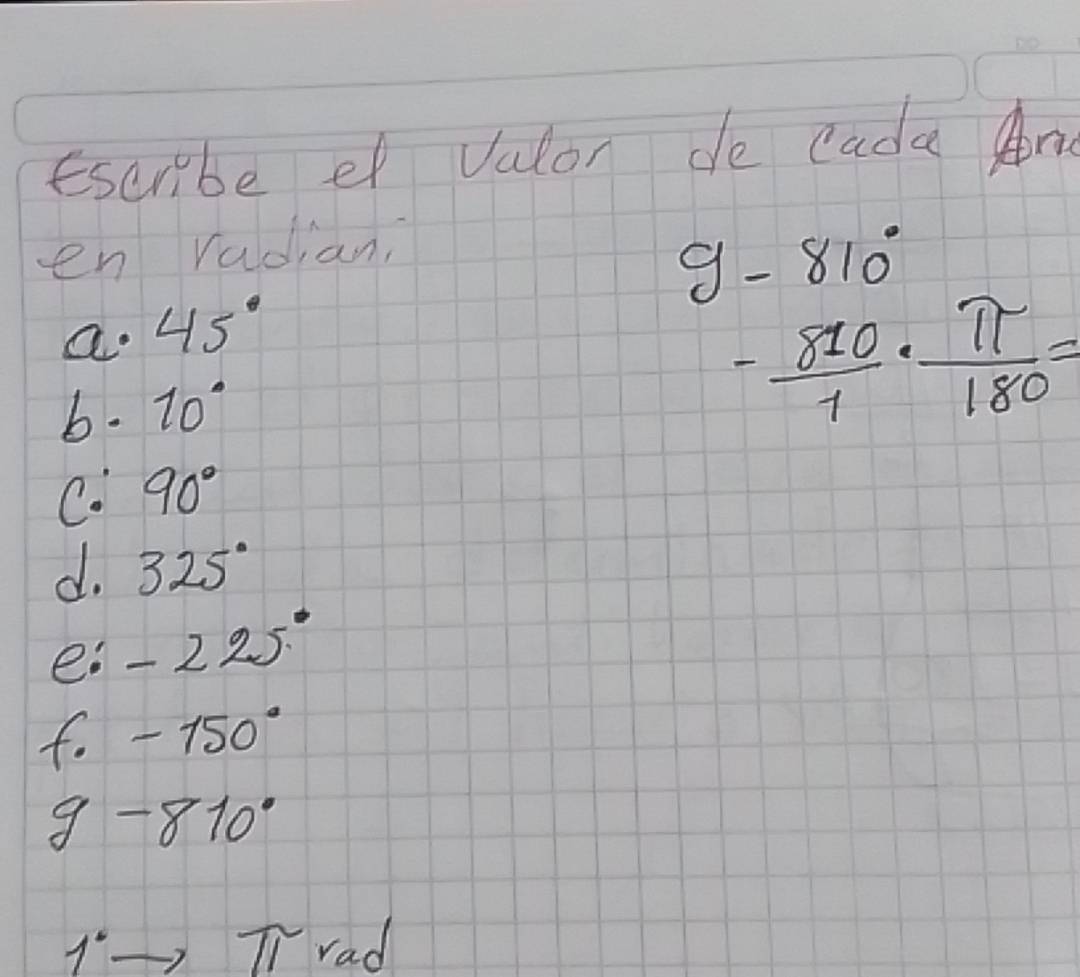 Escribe el Valor de cada
en radian.
a. 45°
b. 10°
c. 90°
d. 325°
e: -225°
f. -150°
g -810°
1° → π rad
g - 810°
- 810/1 · π/180 =